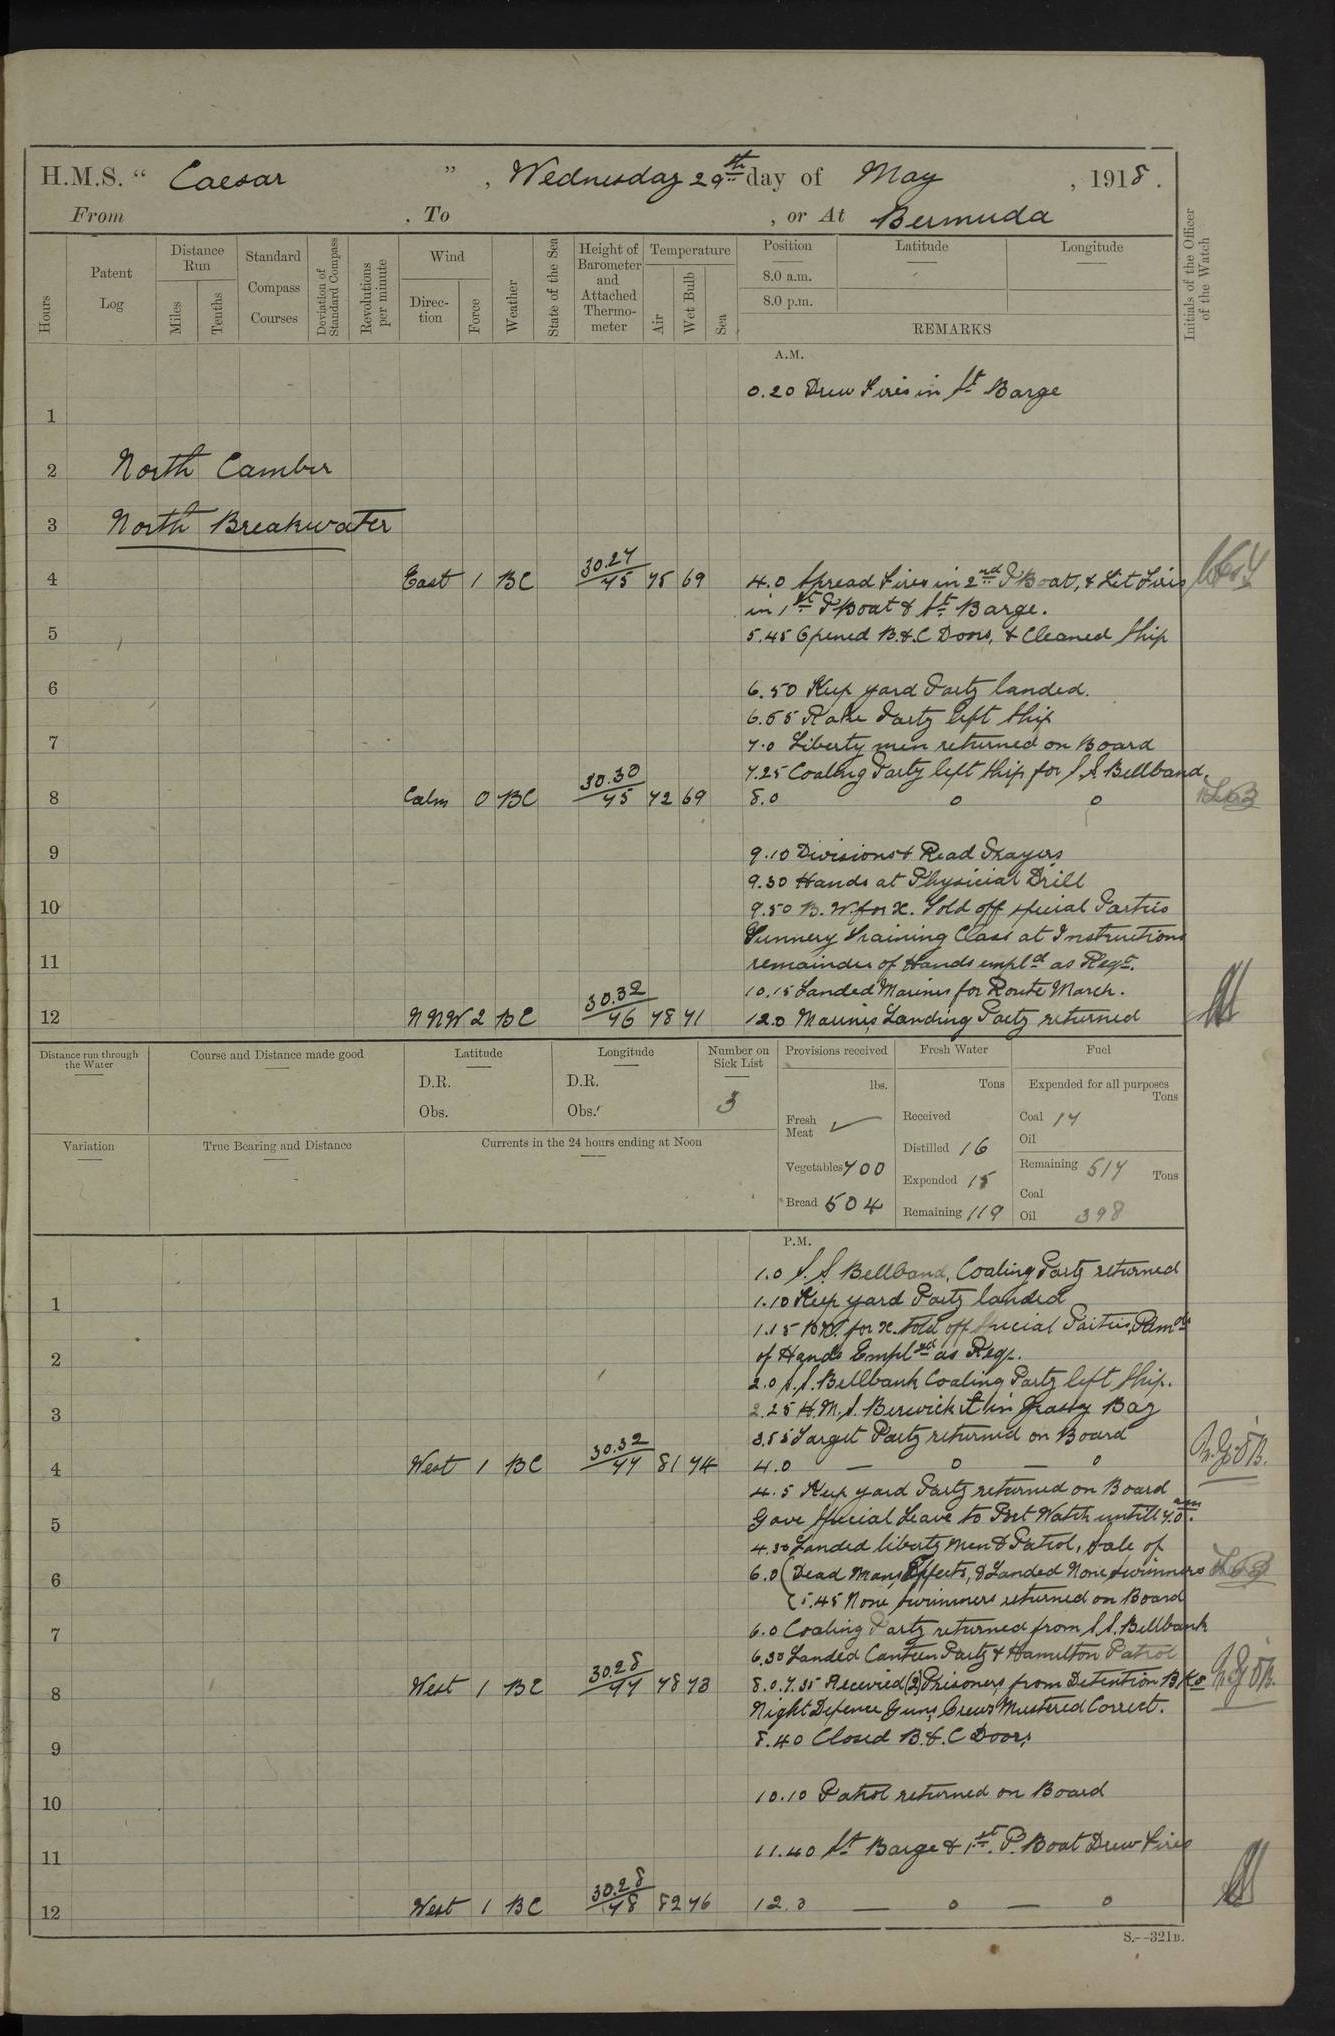 H.M.S. “ Caesar ” , Wednesday 29th day of May , 1918 .
From , To , or At Bermuda
Hours
Patent Log
Distance Run
Miles
Tenths
Standard Compass Courses
Deviation of Standard Compass
Revolutions per minute
Wind
Direc-tion
Force
Weather
State of the Sea
Height of Barometer and Attached Thermo-meter
Temperature
Air
Wet Bulb
Sea
Position
8.0 a.m.
8.0 p.m.
Latitude
Longitude
REMARKS
Initials of the Officer of the Watch
A.M.
0.20 Drew Fires in St Barge
1
2 North Camber
3 North Breakwater
4 East 1 BC 30.27/75 75 69 4.0 Spread Fires in 2nd P Boat, & Lit Fires
in 1st P Boat & St Barge.
5 5.45 Opened B.&.C Doors, & Cleaned Ship
6 6.50 Keep yard Party landed.
6.55 Rake Party left Ship
7 7.0 Liberty men returned on Board
7.25 Coaling Party left Ship for S.S. Bellband.
8 Calm 0 BC 30.30/75 72 69 8.0 o o
9 9.10 Divisions & Read Prayers
9.30 Hands at Physicial Drill
10 9.50 B. W. for x. Told off special Parties
Gunnery Training Class at Instructions
11 remainder of Hands empld as Reqr.
10.15 Landed Marines for Route March.
12 NNW 2 BC 30.32/76 78 71 12.0 Marines Landing Party returned
Distance run through the Water
Course and Distance made good
Latitude
D.R.
Obs.
Longitude
D.R.
Obs.
Number on Sick List
3
Provisions received
lbs.
Fresh Meat ✓
Vegetables 700
Bread 504
Fresh Water
Tons
Received
Distilled 16
Expended 15
Remaining 119
Fuel
Expended for all purposes
Tons
Coal 17
Oil
Remaining 517 Tons
Coal
Oil 398
Variation
True Bearing and Distance
Currents in the 24 hours ending at Noon
P.M.
1.0 S.S. Bellband, Coaling Party returned
1 1.10 Keep yard Party landed
1.15 B.W. for x. told off Special Parties, Remdr
2 of Hands Empled as Reqr.
2.0 S.S. Bellbank Coaling Party left Ship.
3 2.25 H.M.S. Berwick in Grassy Bay
3.55 Target Party returned on Board
4 West 1 BC 30.32/77 81 74 4.0 — o — o
4.5 Keep yard Party returned on Board
5 Gave Special Leave to Port Watch untill 7.0 am.
4.30 Landed liberty men & Patrol, Sale of
6 6.0 (Dead Mans Effects, & Landed None swimmers
(5.45 None swimmers returned on Board
7 6.0 Coaling Party returned from S.S. Bellbank
6.30 Landed Canteen Party & Hamilton Patrol
8 West 1 BC 30.28/77 78 73 8.0. 7.35 Received (2) Prisoners from Detention B.Ks
Night Defence Guns, Crews Mustered Correct.
9 8.40 Closed B.&.C Doors
10 10.10 Patrol returned on Board
11 11.40 St Barge & 1st. P. Boat Drew Fires
12 West 1 BC 30.28/78 82 76 12.0 — o — o
S.—321B.